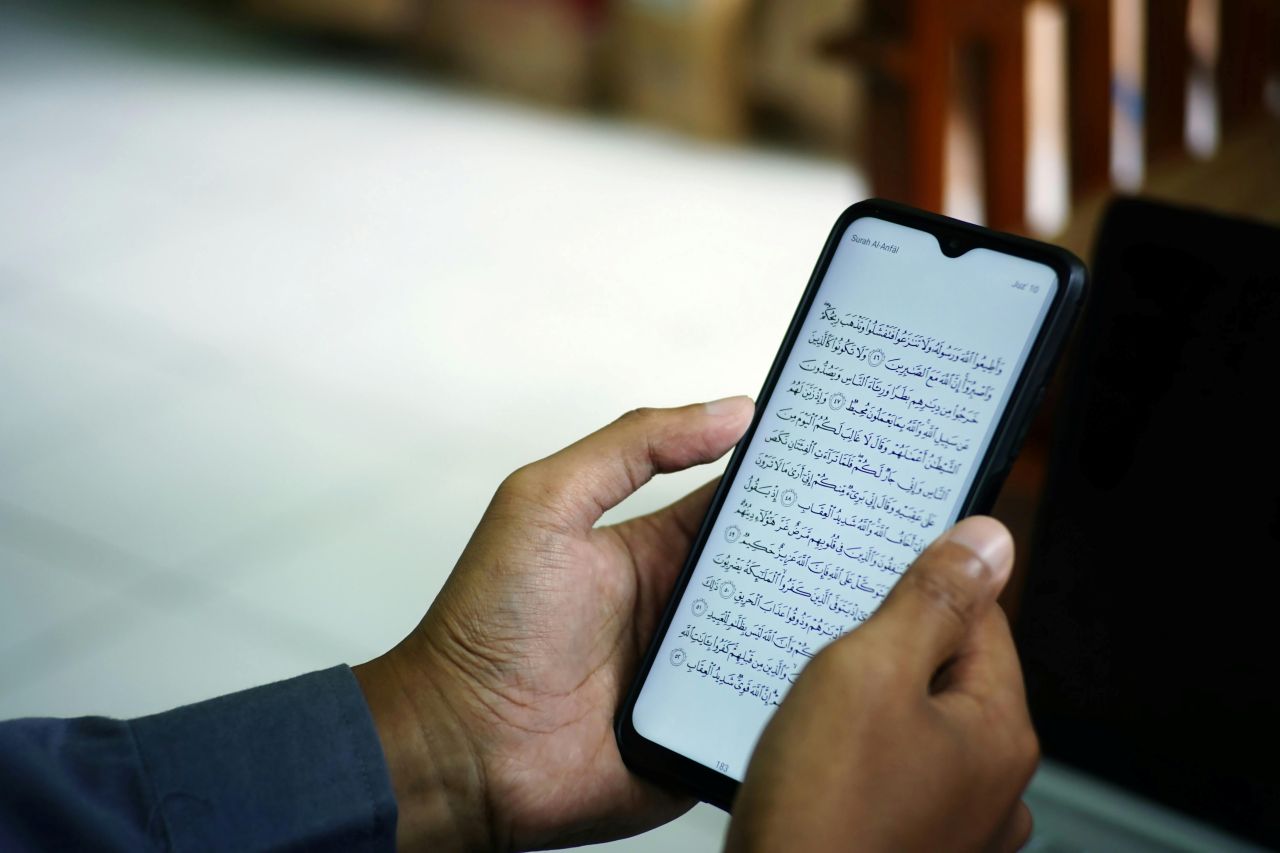 Surah Al-Anfāl
Juz' 10
وَأَطِيعُوا۟ ٱللَّهَ وَرَسُولَهُۥ وَلَا تَنَـٰزَعُوا۟ فَتَفْشَلُوا۟ وَتَذْهَبَ رِيحُكُمْ ۖ
وَٱصْبِرُوٓا۟ إِنَّ ٱللَّهَ مَعَ ٱلصَّـٰبِرِينَ ٤٦ وَلَا تَكُونُوا۟ كَٱلَّذِينَ
خَرَجُوا۟ مِن دِيَـٰرِهِم بَطَرًا وَرِئَآءَ ٱلنَّاسِ وَيَصُدُّونَ
عَن سَبِيلِ ٱللَّهِ ۚ وَٱللَّهُ بِمَا يَعْمَلُونَ مُحِيطٌ ٤٧ وَإِذْ زَيَّنَ لَهُمُ
ٱلشَّيْطَـٰنُ أَعْمَـٰلَهُمْ وَقَالَ لَا غَالِبَ لَكُمُ ٱلْيَوْمَ مِنَ
ٱلنَّاسِ وَإِنِّى جَارٌ لَّكُمْ ۖ فَلَمَّا تَرَآءَتِ ٱلْفِئَتَانِ نَكَصَ
عَلَىٰ عَقِبَيْهِ وَقَالَ إِنِّى بَرِىٓءٌ مِّنكُمْ إِنِّىٓ أَرَىٰ مَا لَا تَرَوْنَ
أَخَافُ ٱللَّهَ ۚ وَٱللَّهُ شَدِيدُ ٱلْعِقَابِ ٤٨ إِذْ يَقُولُ
وَٱلَّذِينَ فِى قُلُوبِهِم مَّرَضٌ غَرَّ هَـٰٓؤُلَآءِ دِينُهُمْ ۗ
يَتَوَكَّلْ عَلَى ٱللَّهِ فَإِنَّ ٱللَّهَ عَزِيزٌ حَكِيمٌ ٤٩
إِذْ يَتَوَفَّى ٱلَّذِينَ كَفَرُوا۟ ۙ ٱلْمَلَـٰٓئِكَةُ يَضْرِبُونَ
وَذُوقُوا۟ عَذَابَ ٱلْحَرِيقِ ٥٠ ذَٰلِكَ
وَأَنَّ ٱللَّهَ لَيْسَ بِظَلَّـٰمٍ لِّلْعَبِيدِ ٥١
وَٱلَّذِينَ مِن قَبْلِهِمْ ۚ كَفَرُوا۟ بِـَٔايَـٰتِ ٱللَّهِ
إِنَّ ٱللَّهَ قَوِىٌّ شَدِيدُ ٱلْعِقَابِ ٥٢
183